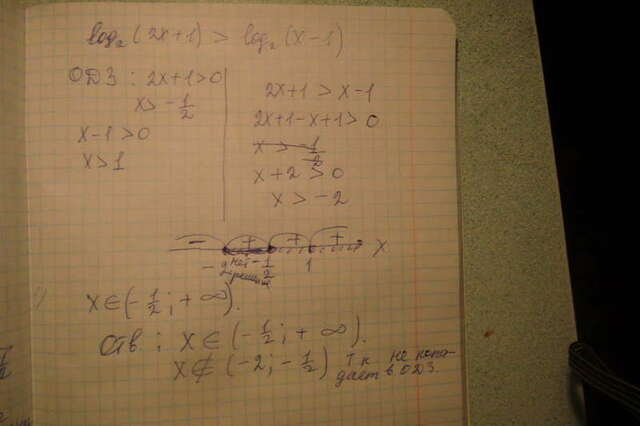 log₂(2x+1) > log₂(x-1)
ОДЗ: 2x+1>0
x>-1/2
x-1>0
x>1
2x+1>x-1
2x+1-x+1>0
x>-1/2
x+2>0
x>-2
- + + + x
-2 нет решений -1/2 1
x∈(-1/2; +∞).
Отв.: x∈(-1/2; +∞).
x∉(-2; -1/2) т.к. не попадает в ОДЗ.